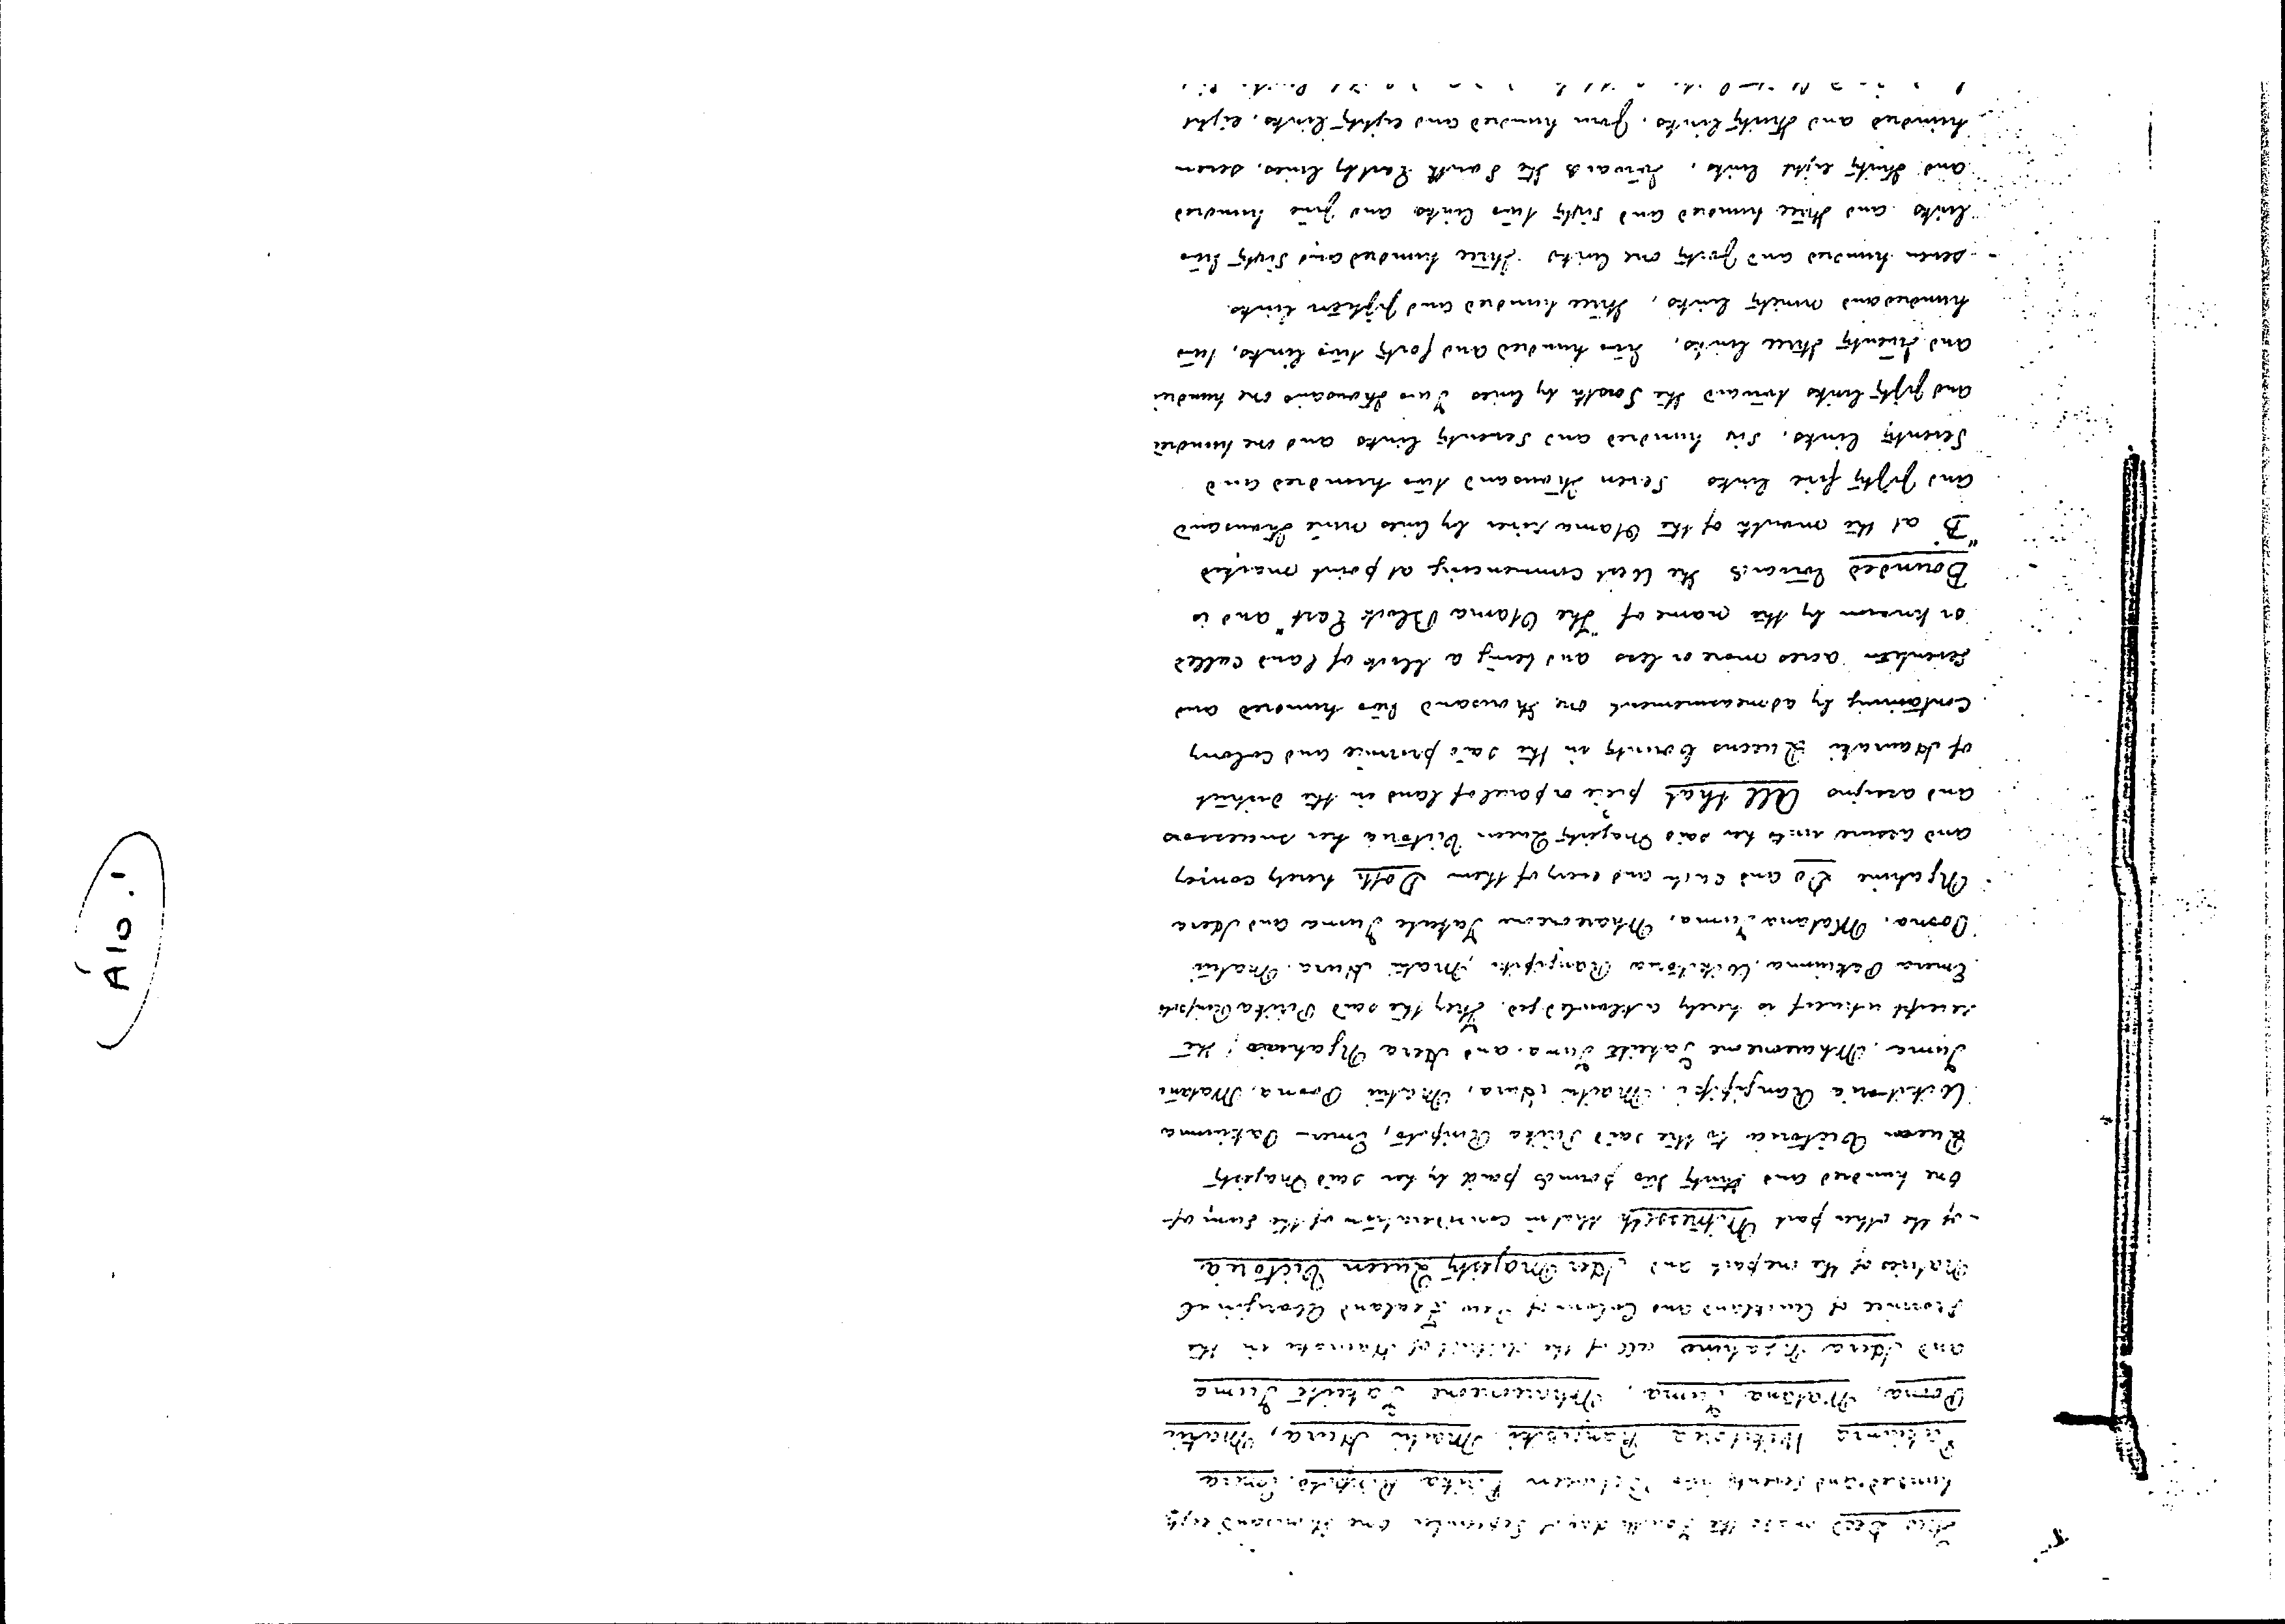 This Deed made the Fourth day of September one thousand eight
hundred and seventy two Between Pirika Ringoto, Emera
Patiuma Wikitoria Rangipiki Maihi Hura, Matiu
Poono, Matana Tuma, Whareoneone Takuite Tuma
and Hera Ngahine all of the district of Hauraki in the
Province of Auckland and Colony of New Zealand Aboriginal
Natives of the one part and Her Majesty Queen Victoria
of the other part Witnesseth that in consideration of the sum of
One hundred and thirty two pounds paid by her said Majesty
Queen Victoria to the said Emera Patiuma
Wikitoria Matiu Poono, Matana
Tuma, Whareoneone Tuma, and Hera the
receipt whereof is hereby acknowledged. They the said
Emera Patiuma, Wikitoria Hura, Matiu
Poono, Matana Tuma, Whareoneone Tuma and Hera
Ngahine Do and each and every of them Doth hereby convey
and assure unto her said Majesty Queen Victoria her successors
and assigns All that piece or parcel of land in the district
of Hauraki Queens County in the said province and Colony
Containing by admeasurement one thousand two hundred and
seventeen acres more or less and being a block of land called
or known by the name of "The Otama Block East" and is
Bounded towards the West commencing at point marked
"B" at the mouth of the Otama river by lines nine thousand
and fifty five links seven thousand two hundred and
Seventy links, six hundred and seventy links and one hundred
and fifty links toward the South by lines Two thousand one hundred
and twenty three links, two hundred and forty two links, two
hundred and ninety links, three hundred and fifteen links
seven hundred and forty one links three hundred and sixty two
links and three hundred and sixty two links and five hundred
and thirty eight links, towards the South East by lines, seven
hundred and thirty links, four hundred and eighty links, eight
A10.1